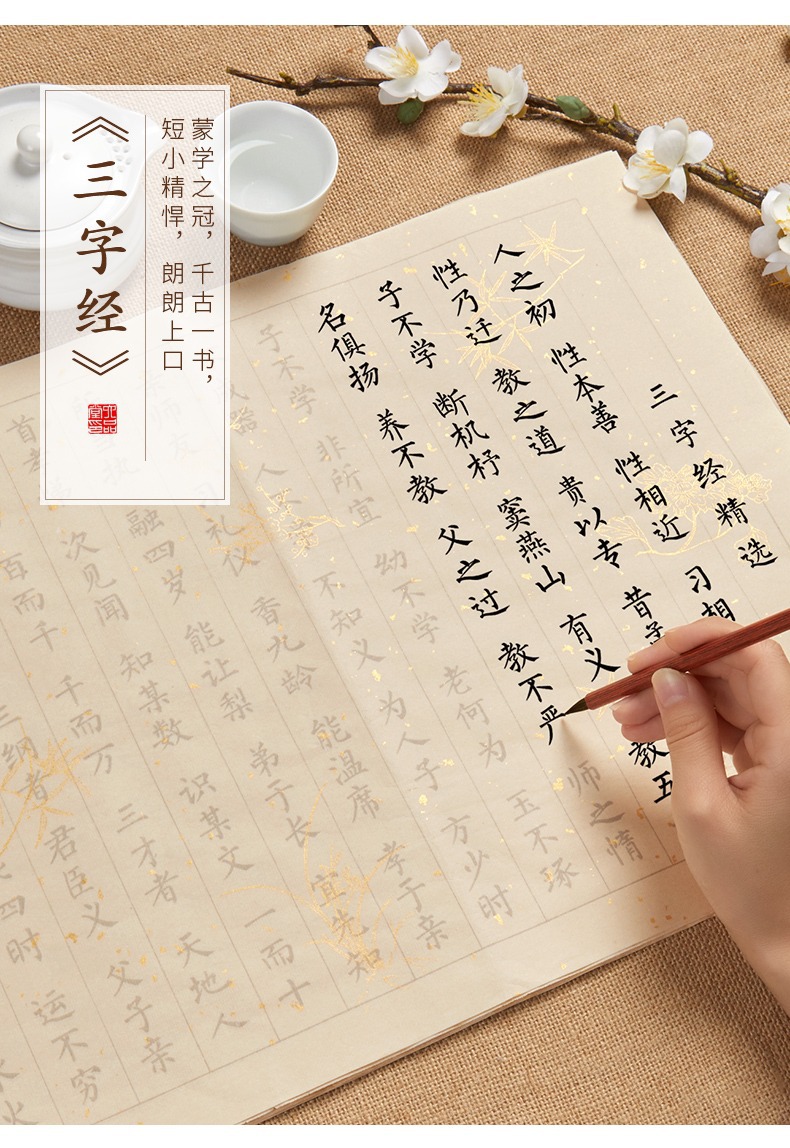 《三字经》
蒙学之冠，千古一书，
短小精悍，朗朗上口
三字经精选
人之初 性本善 性相近 习相
性乃迁 教之道 贵以专 昔孟
子不学 断机杼 窦燕山 有义 教五
名俱扬 养不教 父之过 教不严 师之惰
子不学 非所宜 幼不学 老何为 玉不琢
成器 人不学 不知义 为人子 方少时
亲师友 习礼仪 香九龄 能温席 孝于亲
执 融四岁 能让梨 弟于长 宜先知
首孝 次见闻 知某数 识某文 一而十
百而千 千而万 三才者 天地人
三纲者 君臣义 父子亲
四时 运不穷
水火